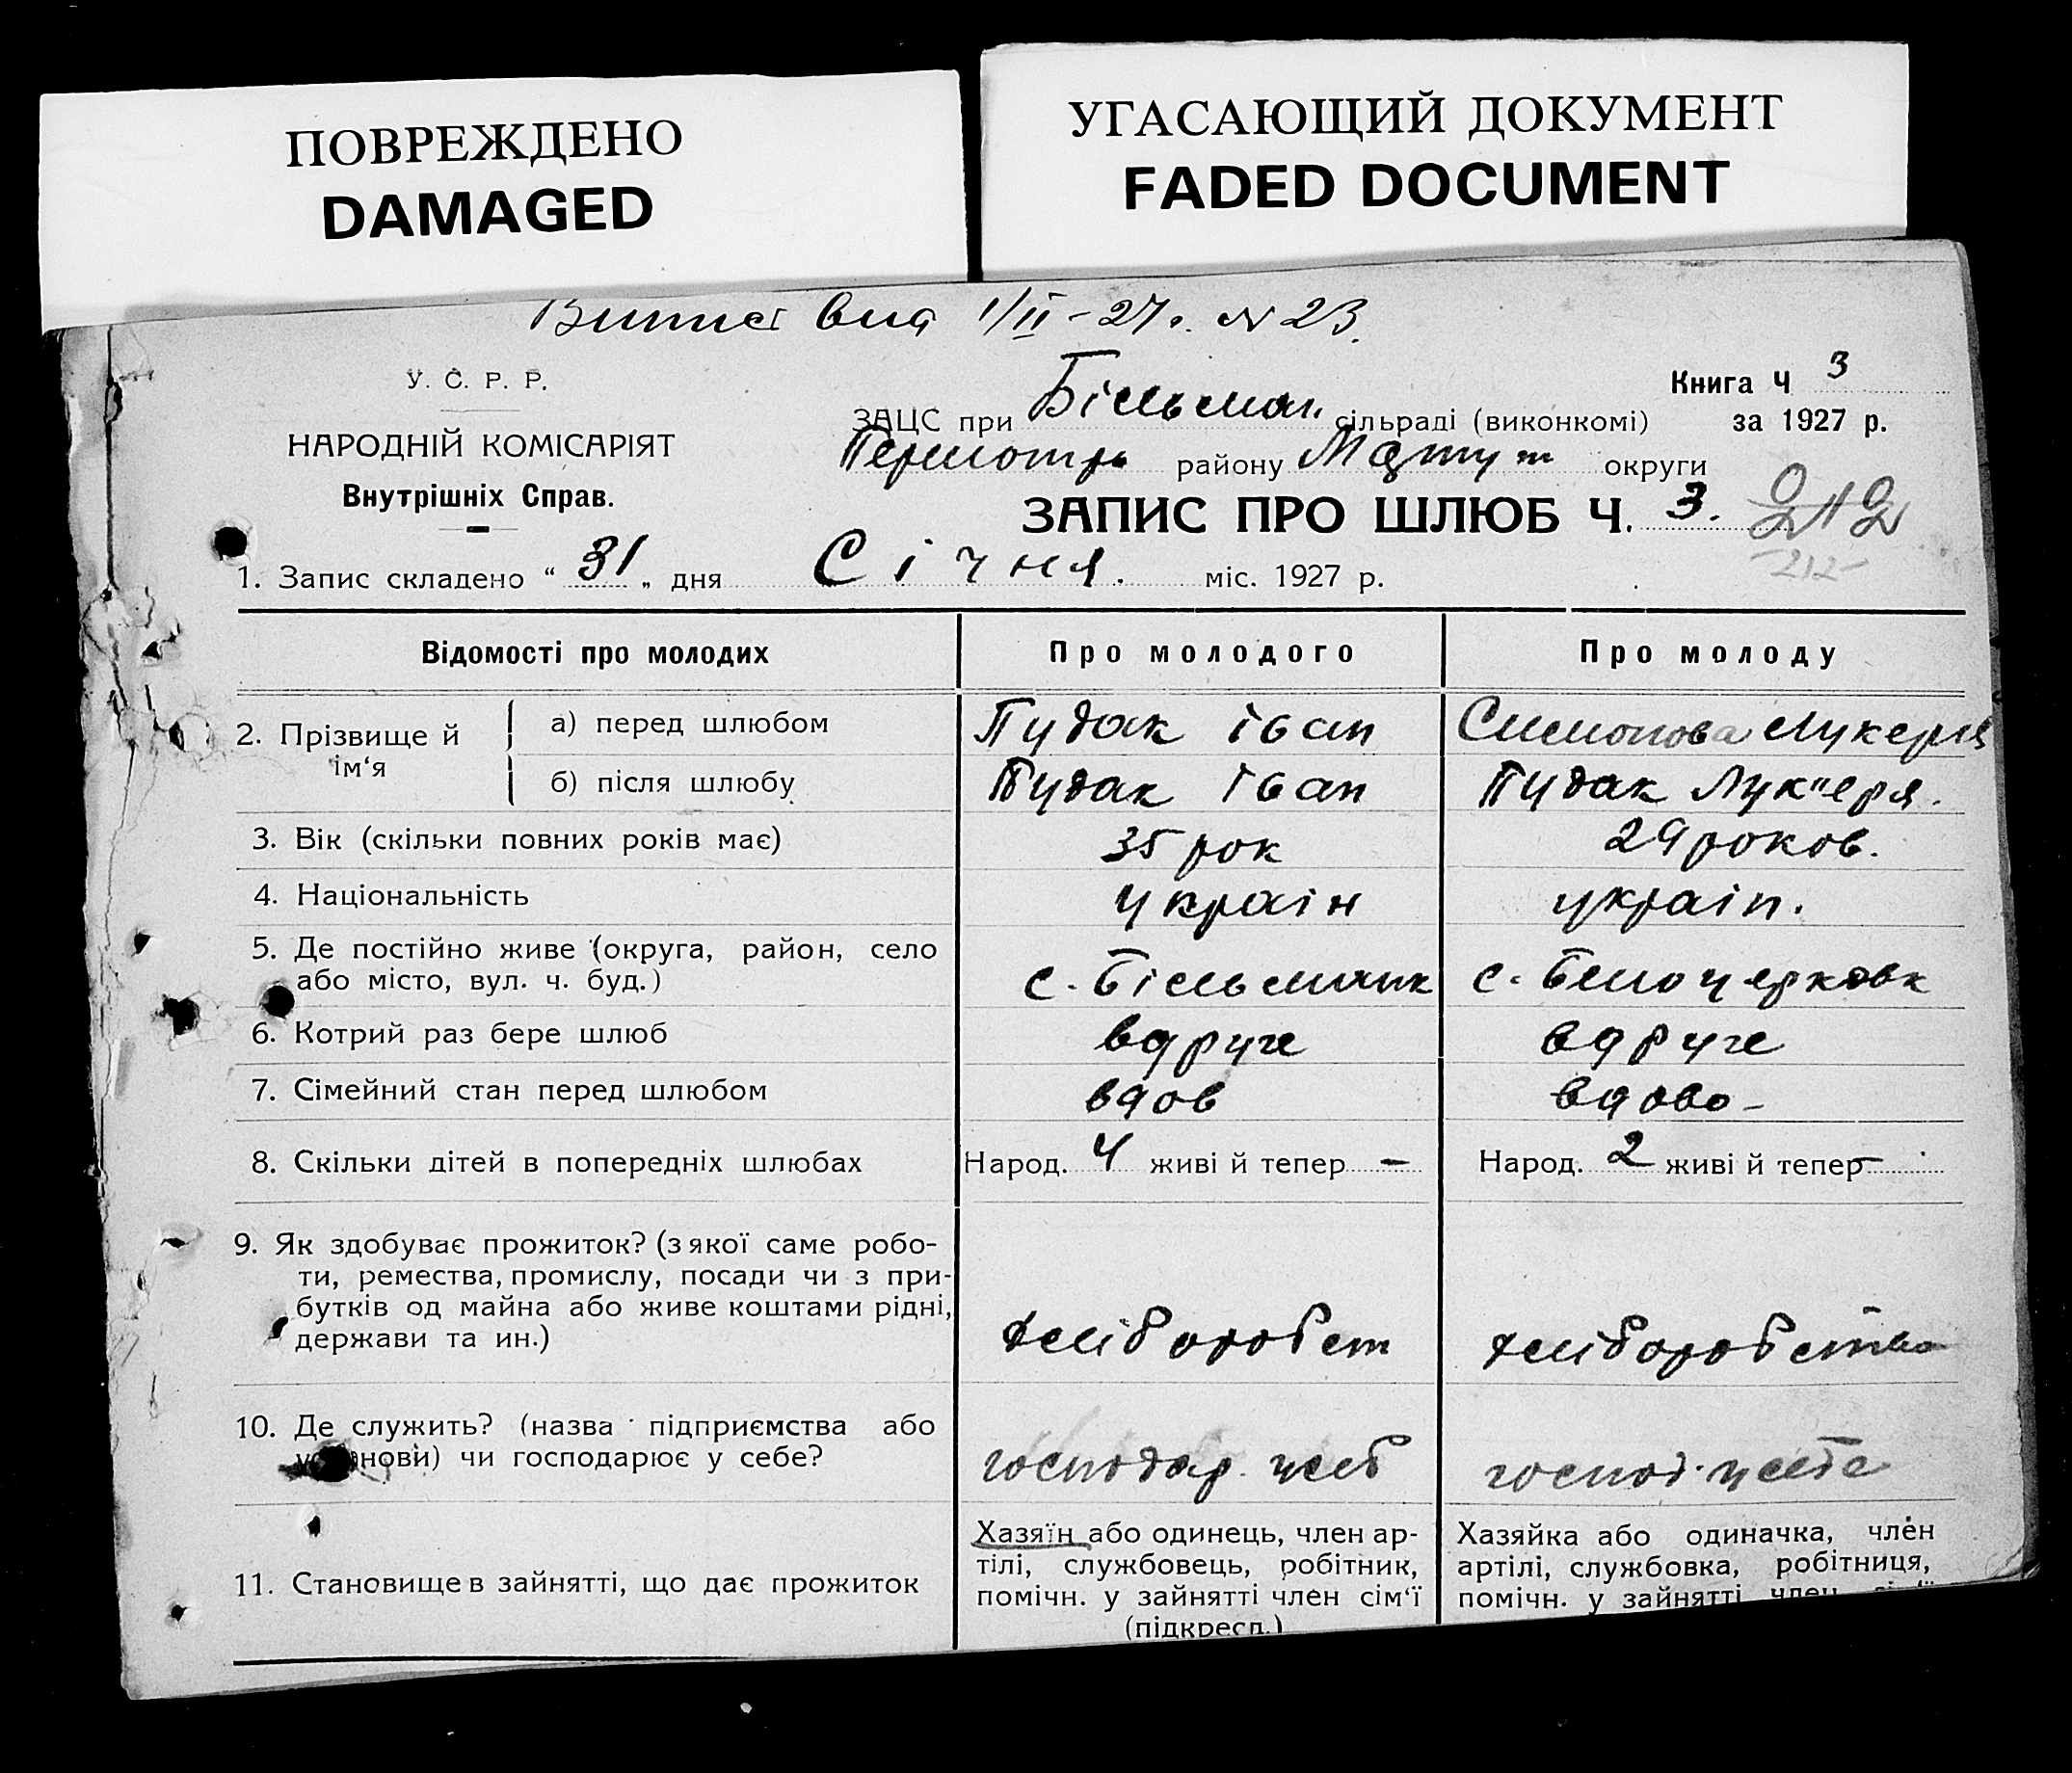 ПОВРЕЖДЕНО
DAMAGED
УГАСАЮЩИЙ ДОКУМЕНТ
FADED DOCUMENT
Випис вид 1/II - 27 г. № 23.
У. С. Р. Р.
НАРОДНІЙ КОМІСАРІЯТ
Внутрішніх Справ.
Книга Ч 3
за 1927 р.
ЗАЦС при Більман. сільраді (виконкомі)
району округи
ЗАПИС ПРО ШЛЮБ Ч. 3. 212
-212-
1. Запис складено “ 31 „ дня Січня. міс. 1927 р.
Відомості про молодих
Про молодого
Про молоду
2. Прізвище й ім‘я
а) перед шлюбом
Пудак Іван
Симонова Лукеря
б) після шлюбу
Пудак Іван
Пудак Лук"еря.
3. Вік (скільки повних років має)
35 рок
29 роков.
4. Національність
україн
україн.
5. Де постійно живе (округа, район, село
або місто, вул. ч. буд.)
с. Більманк
с. Білоцерковк
6. Котрий раз бере шлюб
вдруге
вдруге
7. Сімейний стан перед шлюбом
вдов
вдова -
8. Скільки дітей в попередніх шлюбах
Народ. 4 живі й тепер -
Народ. 2 живі й тепер -
9. Як здобуває прожиток? (з якої саме робо-
ти, ремества, промислу, посади чи з при-
бутків од майна або живе коштами рідні,
держави та ин.)
хліборобст
хліборобство
10. Де служить? (назва підприємства або
установи) чи господарює у себе?
господар. у себ
господ. у себе
11. Становище в зайнятті, що дає прожиток
Хазяїн або одинець, член ар-
тілі, службовець, робітник,
помічн. у зайнятті член сім‘ї
(підкресл.)
Хазяйка або одиначка, член
артілі, службовка, робітниця,
помічн. у зайнятті член сім‘ї